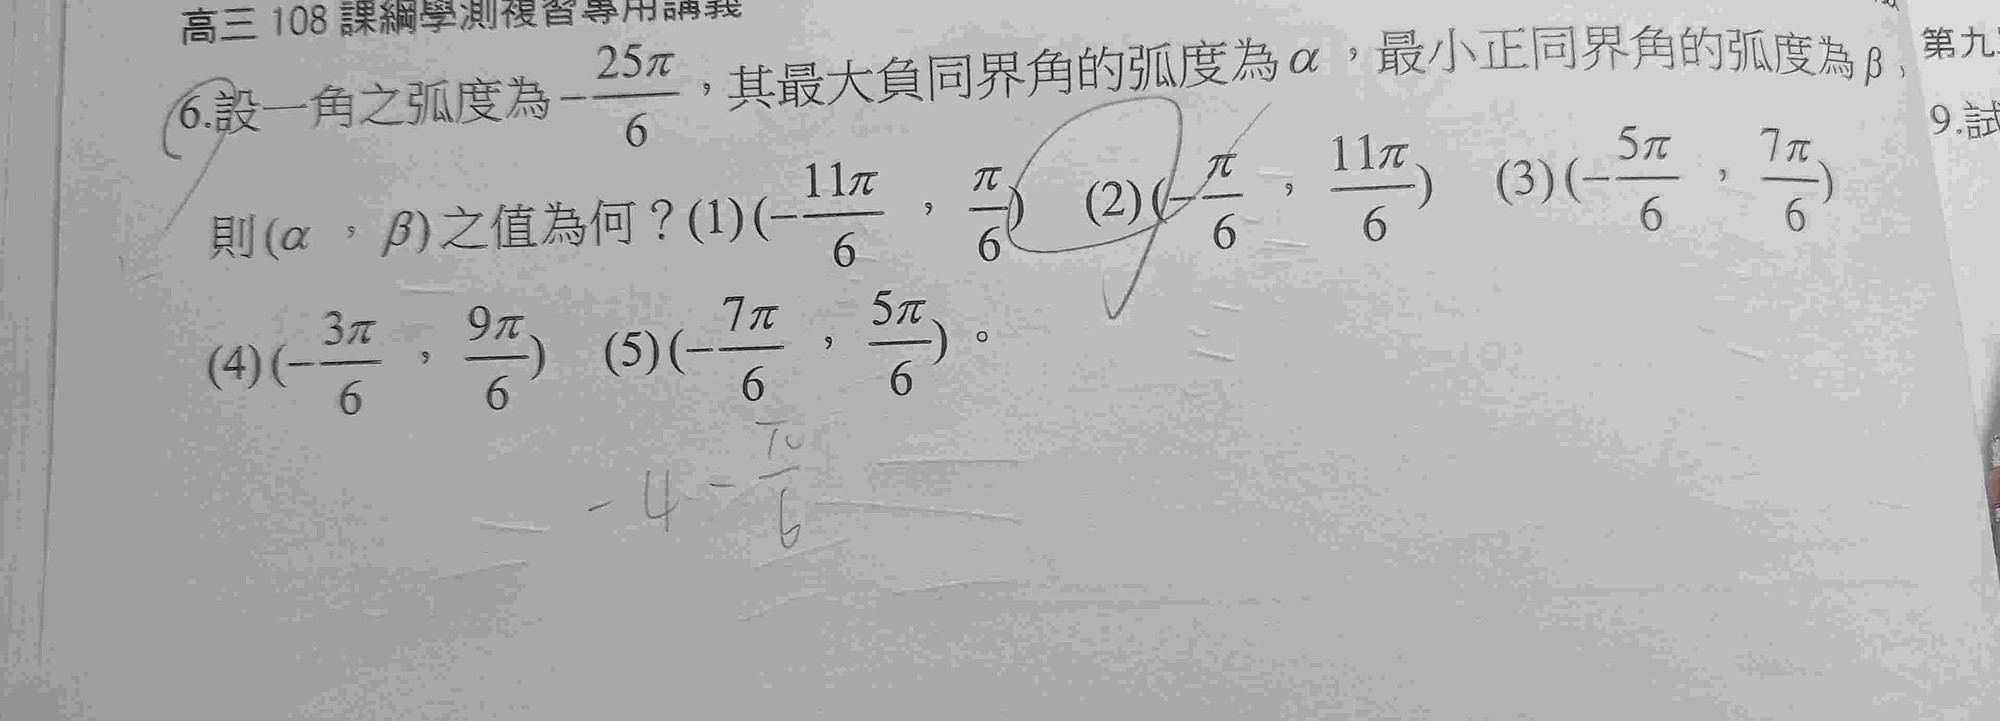 高三 108 課綱學測複習專用講義
6.設一角之弧度為 -25π/6，其最大負同界角的弧度為 α，最小正同界角的弧度為 β，
則(α，β)之值為何？(1)(-11π/6，π/6) (2)(-π/6，11π/6) (3)(-5π/6，7π/6)
(4)(-3π/6，9π/6) (5)(-7π/6，5π/6)。
-4-π/6
第九
9.試